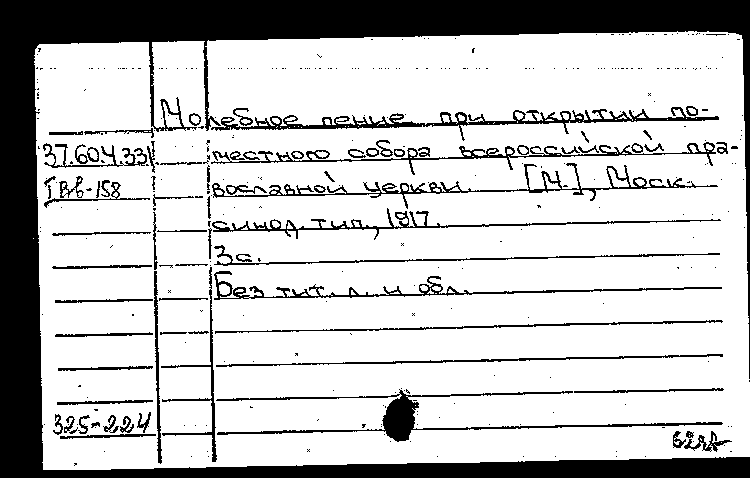 Молебное пение при открытии по-
37.604.331 местного собора всероссийской пра-
I Вб-158 вославной церкви. [М.], Моск.
синод. тип., 1917.
3 с.
Без тит. л. и обл.
325-224